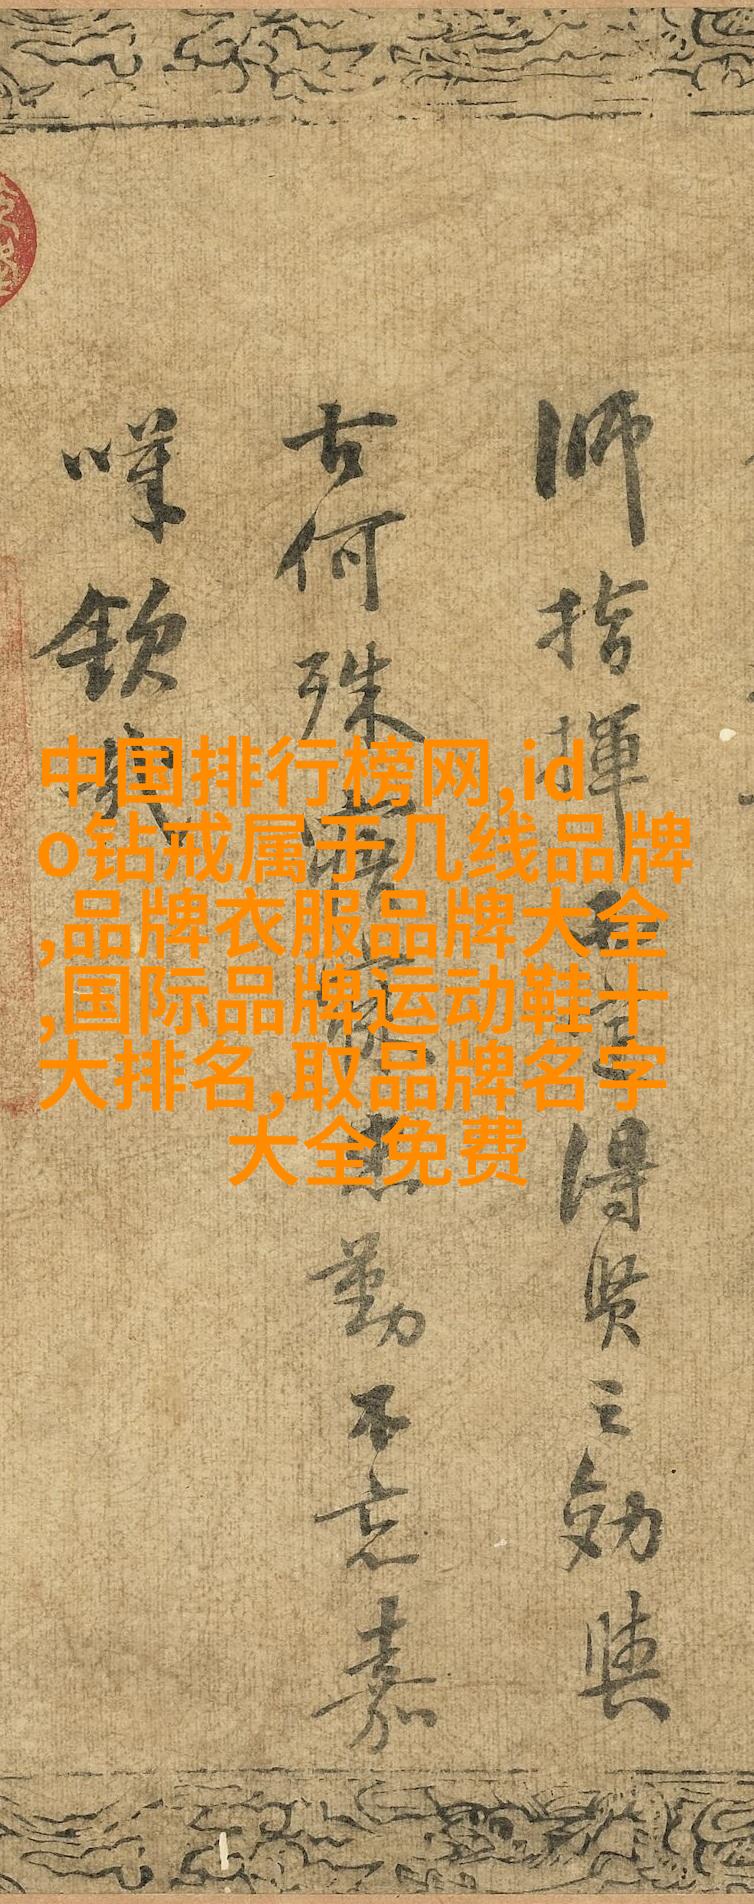 中国排行榜网,id
o钻戒属于几线品牌
,品牌衣服品牌大全
,国际品牌运动鞋十
大排名,取品牌名字
大全免费
師指揮得賢之効與
古何殊勤不忘嘉
嘆欽哉